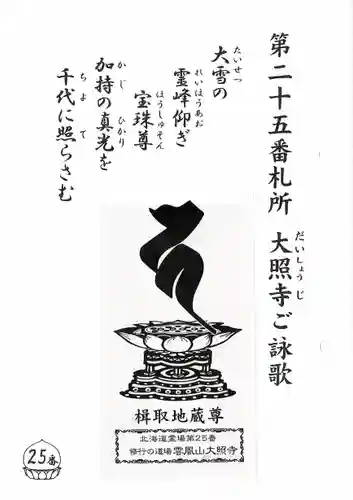 第二十五番札所 大照寺ご詠歌
だいしょうじ
大雪の
たいせつ
霊峰仰ぎ
れいほうあお
宝珠尊
ほうしゅそん
加持の真光を
かじ ひかり
千代に照らさむ
ちよ て
楫取地蔵尊
北海道霊場第25番
修行の道場 雲鳳山大照寺
25番